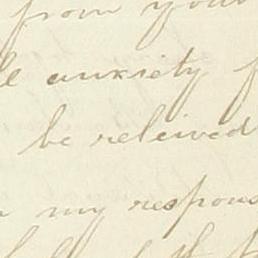 from your
anxiety
be releived
my respons